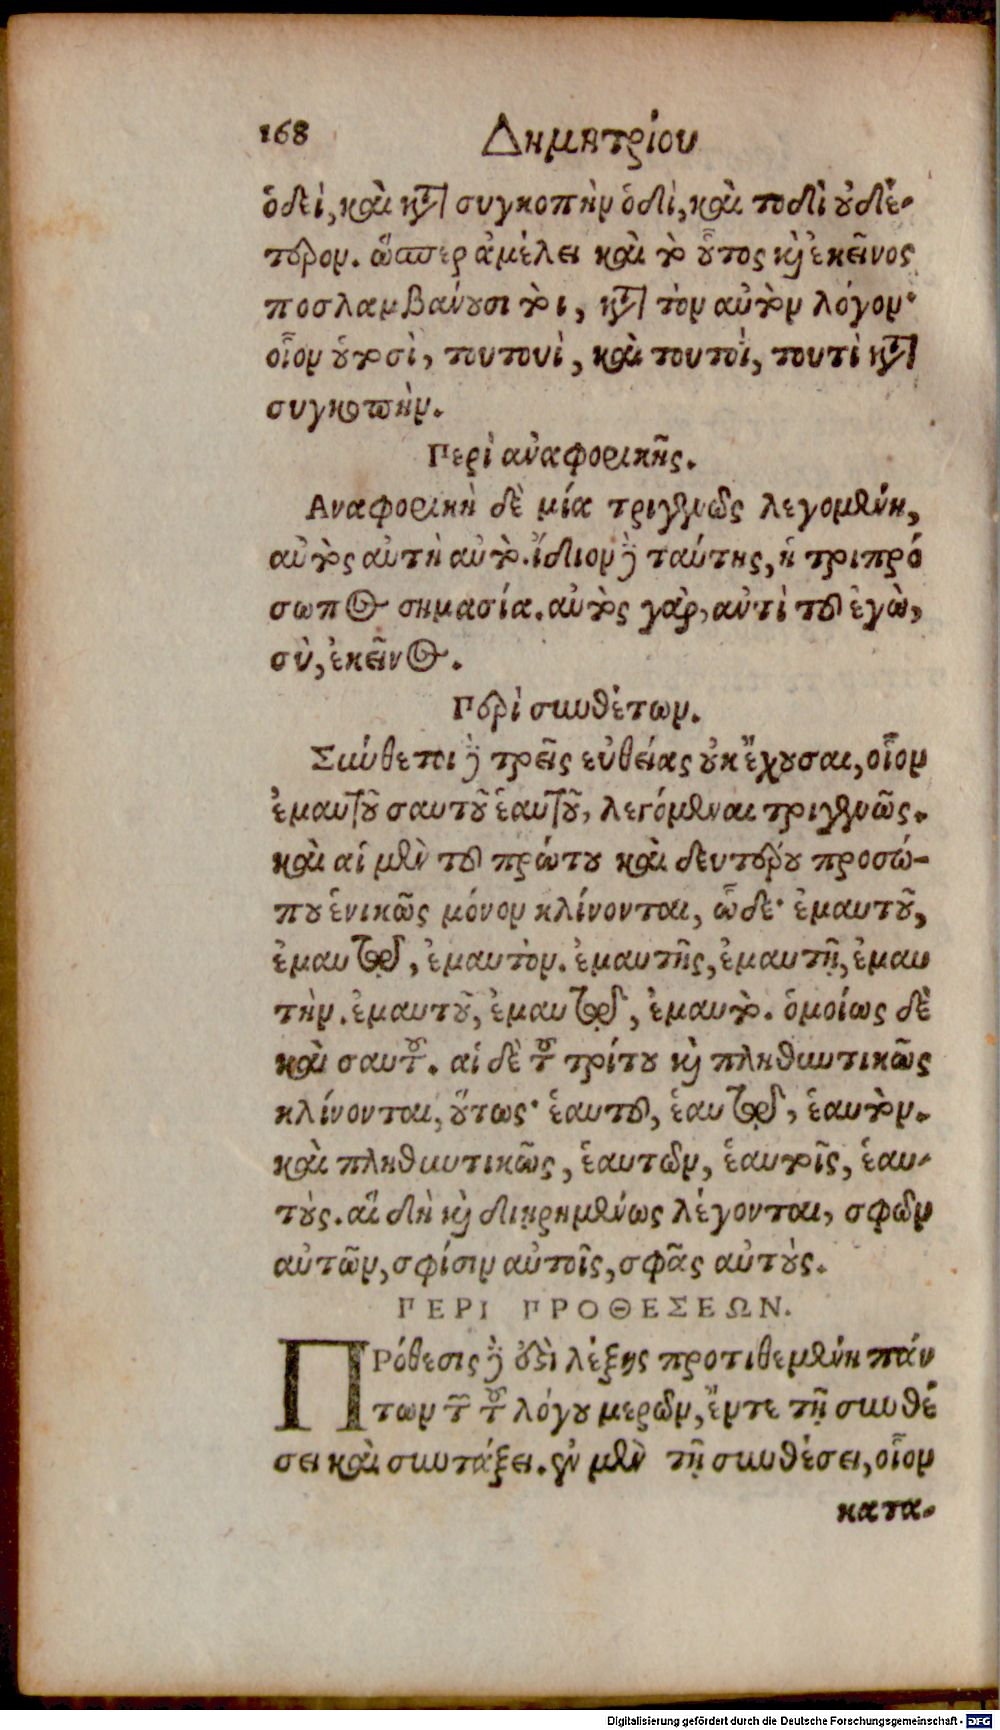 168 Δημητρίου
ὁδεί, καὶ κατὰ συγκοπὴν ὁδὶ, καὶ τοδὶ οὐδέ-
τερον. ὥσπερ ἀμέλει καὶ τὸ οὗτος καὶ ἐκεῖνος
ποσλαμβάνουσι τὸ ι, κατὰ τὸν αὐτὸν λόγον·
οἷον οὑτοσὶ, τουτουὶ, καὶ τουτοῒ, τουτὶ κατὰ
συγκοπὴν.
Περὶ ἀναφορικῆς.
Αναφορικὴ δὲ μία τριγενῶς λεγομένη,
αὐτὸς αὐτὴ αὐτὸ. ἴδιον δὲ ταύτης, ἡ τριπρό
σωπος σημασία. αὐτὸς γὰρ, αὐτὶ τοῦ ἐγὼ,
σὺ, ἐκεῖνος.
Περὶ συνθέτων.
Σύνθετοι δὲ τρεῖς εὐθείας οὐκ ἔχουσαι, οἷον
ἐμαυτοῦ σαυτοῦ ἑαυτοῦ, λεγόμεναι τριγενῶς.
καὶ αἱ μὲν τοῦ πρώτου καὶ δευτέρου προσώ-
που ἑνικῶς μόνον κλίνονται, ὧδε· ἐμαυτοῦ,
ἐμαυτῷ, ἐμαυτὸν. ἐμαυτῆς, ἐμαυτῇ, ἐμαυ
τὴν. ἐμαυτοῦ, ἐμαυτῷ, ἐμαυτὸ. ὁμοίως δὲ
καὶ σαυτοῦ. αἱ δὲ τοῦ τρίτου καὶ πληθυντικῶς
κλίνονται, οὕτως· ἑαυτοῦ, ἑαυτῷ, ἑαυτὸν.
καὶ πληθυντικῶς, ἑαυτῶν, ἑαυτοῖς, ἑαυ-
τοὺς. αἳ δὴ καὶ διῃρημένως λέγονται, σφῶν
αὐτῶν, σφίσιν αὐτοῖς, σφᾶς αὐτοὺς.
ΠΕΡΙ ΠΡΟΘΕΣΕΩΝ.
ΠΡόθεσις δὲ ἐστὶ λέξις προτιθεμένη πάν
των τῶν τοῦ λόγου μερῶν, ἔν τε τῇ συνθέ
σει καὶ συντάξει. ἐν μὲν τῇ συνθέσει, οἷον
κατα-
Digitalisierung gefördert durch die Deutsche Forschungsgemeinschaft - DFG